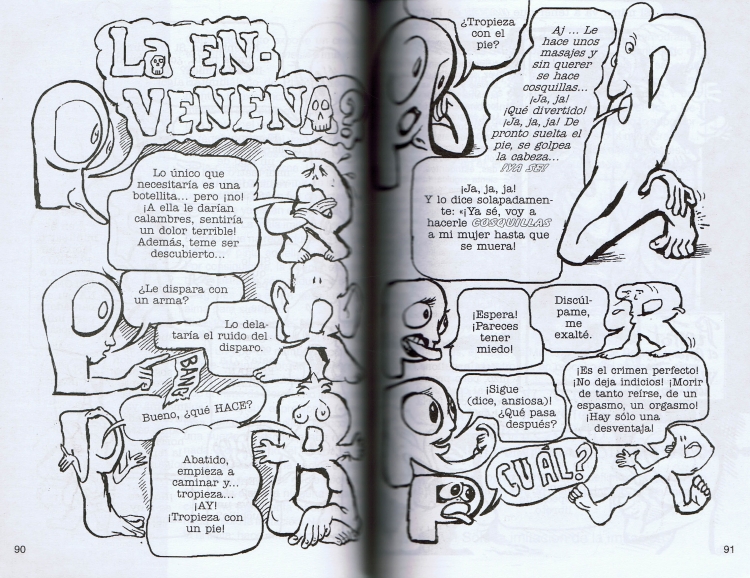 LA EN-
VENENA
Lo único que
necesitaría es una
botellita... pero ¡no!
¡A ella le darían
calambres, sentiría
un dolor terrible!
Además, teme ser
descubierto...
¿Le dispara con
un arma?
Lo dela-
taría el ruido del
disparo.
BANG!
Bueno, ¿qué HACE?
Abatido,
empieza a
caminar y...
tropieza...
¡AY!
¡Tropieza con
un pie!
90
¿Tropieza
con el
pie?
Aj ... Le
hace unos
masajes y
sin querer
se hace
cosquillas...
¡Ja, ja!
¡Qué divertido!
¡Ja, ja, ja! De
pronto suelta el
pie, se golpea
la cabeza...
¡YA SE!
¡Ja, ja, ja!
Y lo dice solapadamen-
te: «¡Ya sé, voy a
hacerle COSQUILLAS
a mi mujer hasta que
se muera!
¡Espera!
¡Pareces
tener
miedo!
Discúl-
pame,
me
exalté.
¡Es el crimen perfecto!
¡No deja indicios! ¡Morir
de tanto reírse, de un
espasmo, un orgasmo!
¡Hay sólo una
desventaja!
¡Sigue
(dice, ansiosa)!
¿Qué pasa
después?
CUÁL?
91